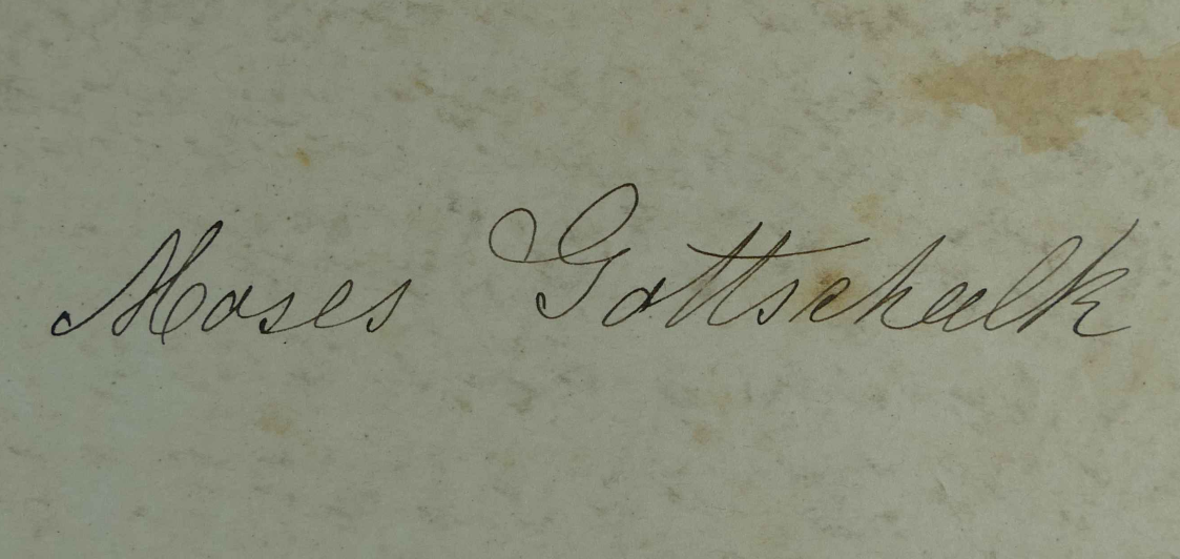 Moses Gottschalk